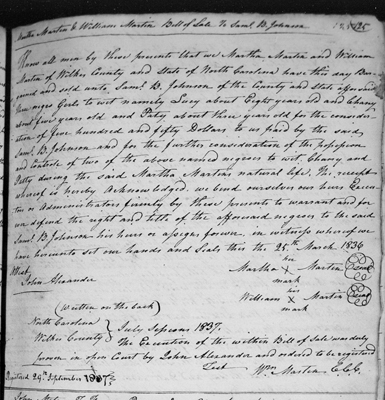 Martha Martin & William Martin Bill of Sale To Saml B. Johnson
Know all men by these presents that we Martha Martin and William
Martin of Wilkes County and State of North Carolina have this day Bar-
gained and sold unto Saml B. Johnson of the County and State aforesaid
three negro Girls to wit namely Lucy about Eight years old and Chany
about five years old and Patsy about three years old for the consider-
ation of five hundred and fifty Dollars to us paid by the said
Saml B. Johnson and for the further consideration of the possession
and Controle of two of the above named negroes to wit, Chany and
Patsy during the said Martha Martins natural life, The receipt
whereof is hereby Acknowledged, we bend ourselves our heirs Execu-
tors or Administrators firmly by these presents to warrant and for-
we defend the right and title of the afforesaid negroes to the said
Saml B. Johnson his heirs or assigns forever. in witness whereof we
have hereunto set our hands and Seals this the 25th March 1836
Attest
her
John Alexander
Martha X Martin Seal
mark
his
William X Martin Seal
mark
(written on the back)
North Carolina
Wilkes County
July Sessions 1837.
The Execution of the within Bill of Sale was duly
proven in open Court by John Alexander and ordered to be registered
Test Wm Martin C.C.C.
Registered 29th September 1837